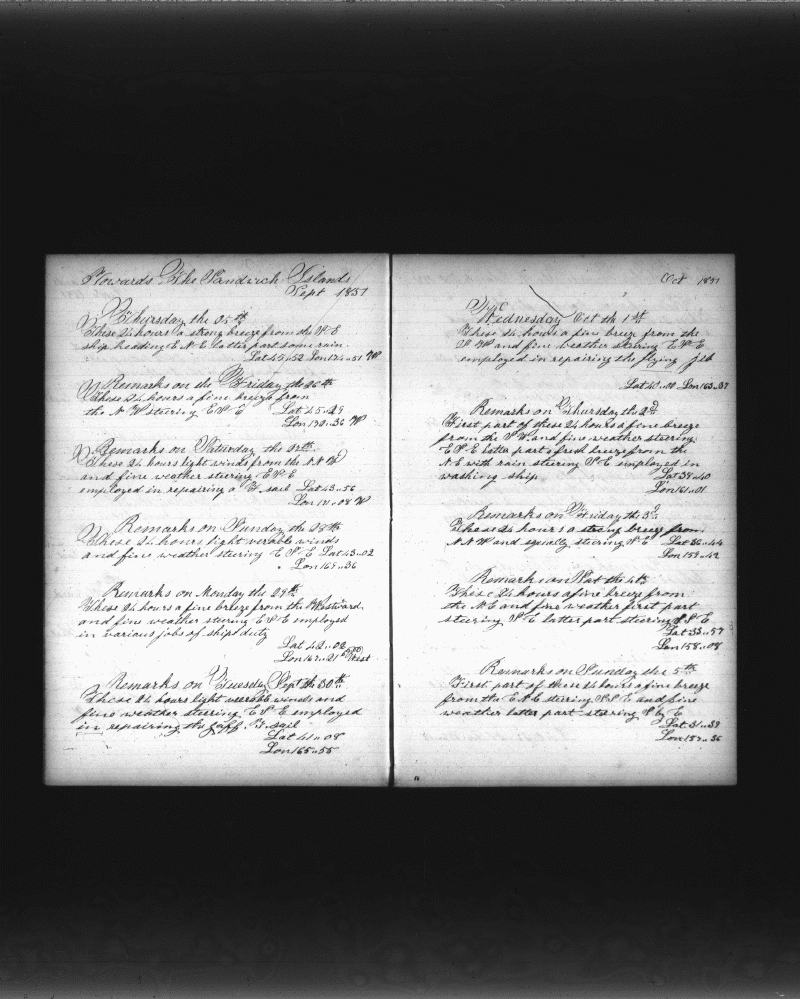 Towards The Sandwich Islands
Sept 1851
Thursday the 25th
These 24 hours a strong breeze from the S.E
ship heading E N E latter part some rain
Lat 45..52 Lon 174..51 W
Remarks on the Friday the 26th
These 24 hours a fine breeze from
the N W steering E S E Lat 45..29
Lon 36 W
Remarks on Saturday the 27th
These 24 hours light winds from the N N W
and fine weather steering E S E
employed in repairing a sail Lat 43..56
Lon 08 W
Remarks on Sunday the 28th
These 24 hours light verable winds
and fine weather steering E S E Lat 43..02
Lon 169..36
Remarks on Monday the 29th
These 24 hours a fine breeze from the Westward
and fine weather steering E S E employed
in various jobs of ships duty
Lat 42..02
Lon 167..21 West
Remarks on Tuesday Sept the 30th
These 24 hours light verable winds and
fine weather steering E S E employed
in repairing the gaff T. sail
Lat 41..08
Lon 165..55
Oct 1851
Wednesday Oct the 1st
These 24 hours a fine breeze from the
S W and fine weather steering E S E
employed in repairing the flying jib
Lat 40..01 Lon 163..37
Remarks on Thursday the 2d
First part of these 24 hours a fine breeze
from the S W. and fine weather steering
E S E latter part a fresh breeze from the
N.E with rain steering S E employed in
washing ship Lat 38..40
Lon 161..01
Remarks on Friday the 3d
These 24 hours a strong breeze from
N N W and squally steering S E Lat 36..44
Lon 159..42
Remarks on Sat the 4th
These 24 hours a fine breeze from
the N.E and fine weather first part
steering S E latter part steering S S E
Lat 33..57
Lon 158..08
Remarks on Sunday the 5th
First part of these 24 hours a fine breeze
from the E N E steering S S E and fine
weather latter part steering S by E
Lat 31..39
Lon 157..36